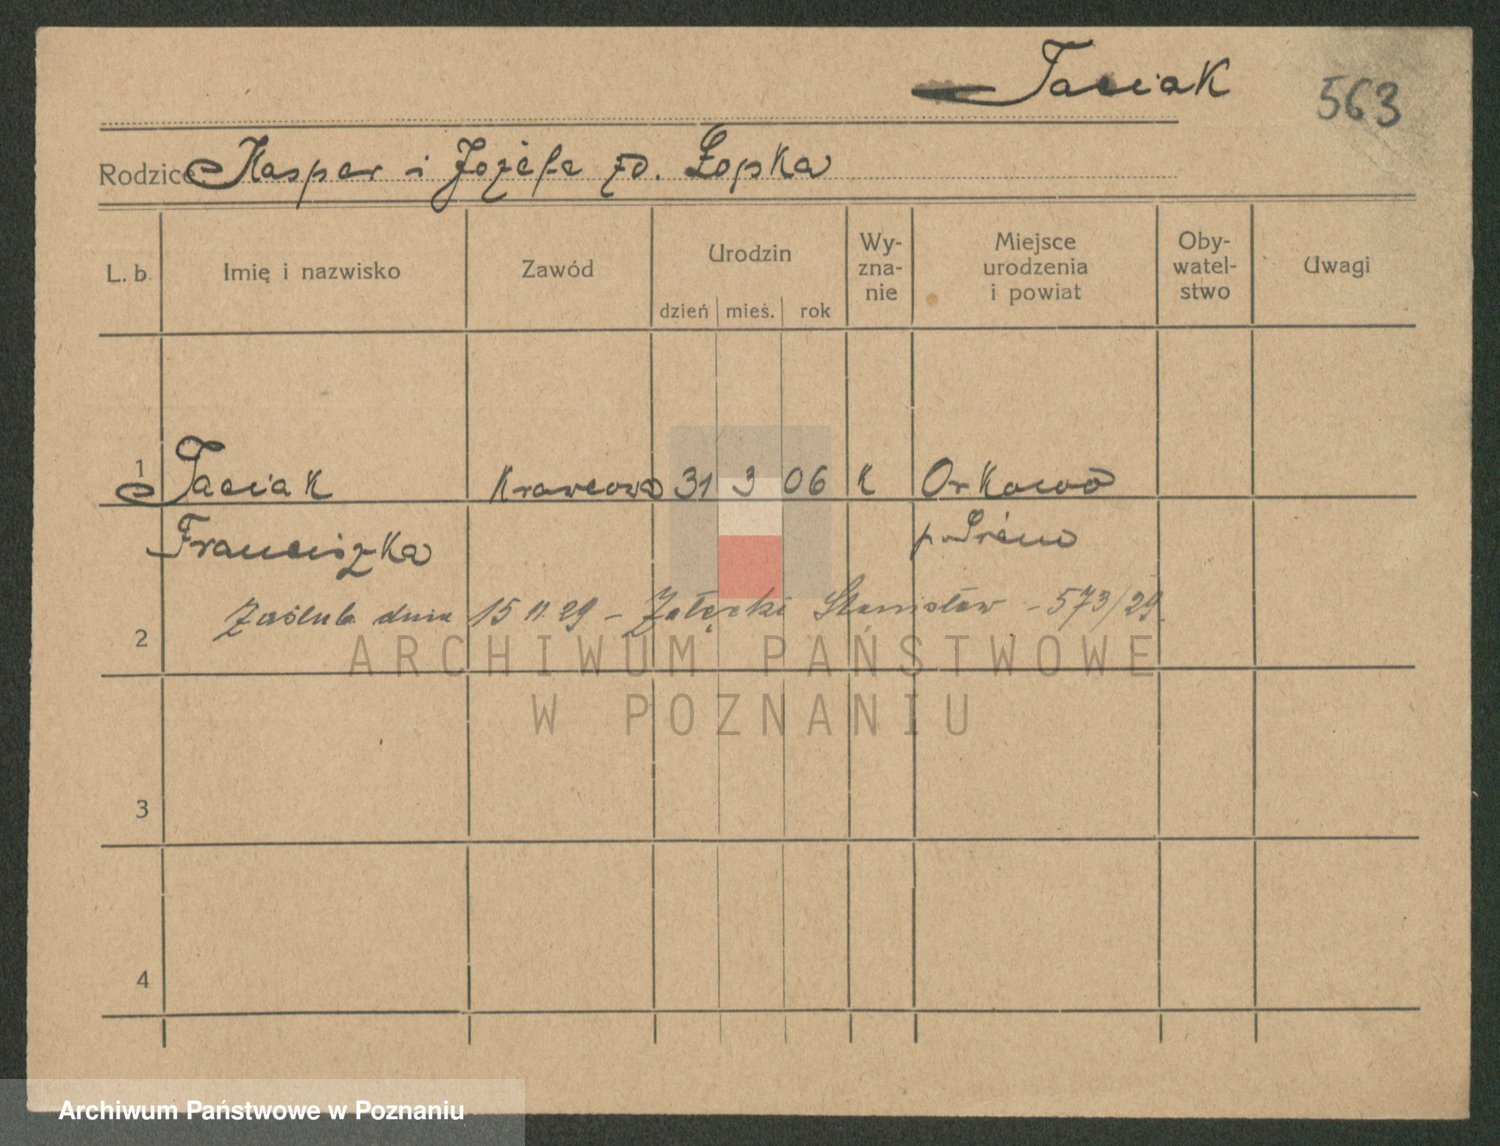 Taciak
563
Rodzice Kasper i Józefa zd. Łopska
L. b. Imię i nazwisko Zawód Urodzin dzień mieś. rok Wy-zna-nie Miejsce urodzenia i powiat Oby-watel-stwo Uwagi
1 Taciak Krawcowa 31 3 06 K Orkowo
Franciszka p. Śrem
2 Zaślub. dnia 15 11 29 – Załęcki Stanisław – 573/29.
ARCHIWUM PAŃSTWOWE
W POZNANIU
3
4
Archiwum Państwowe w Poznaniu